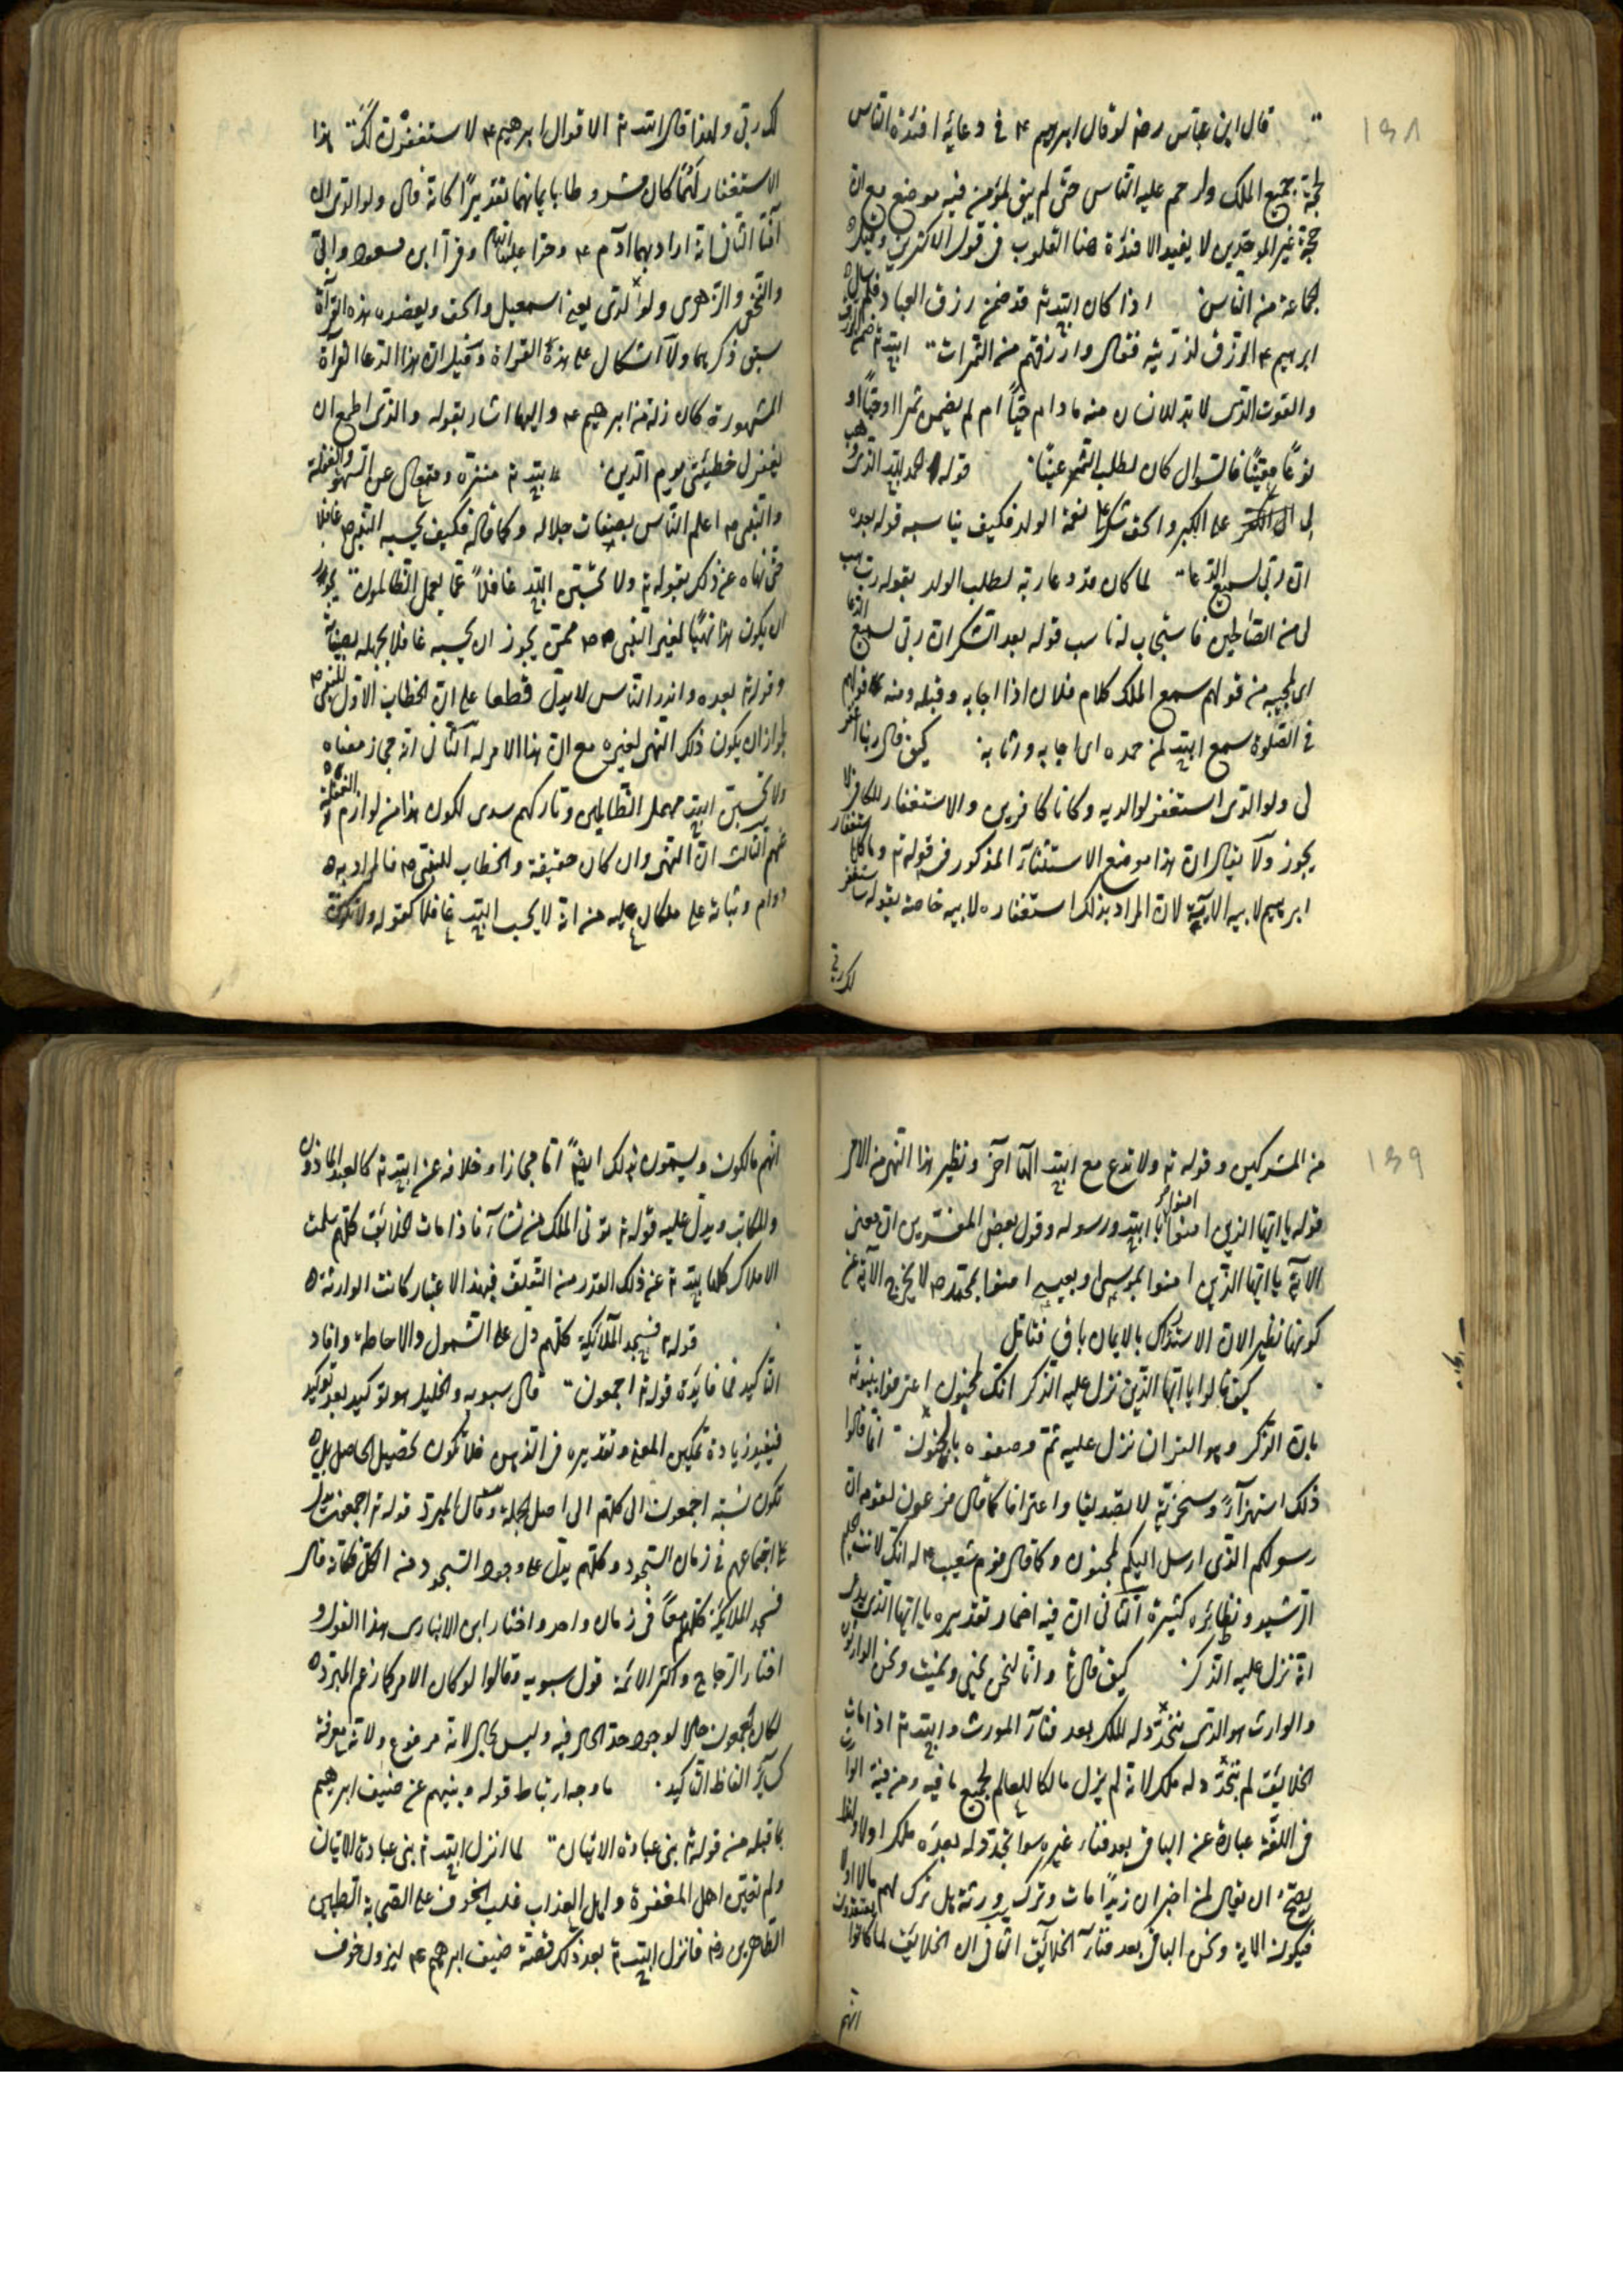 ١٣٨
قال ابن عباس رضه لو قال ابراهيم ٤م فى دعايه افئدة الناس
لحجه جميع الملل ولزحم عليه الناس حتى لم يبق لمؤمن فيه موضع مع ان
حج غير الموحدين لا يفيد الافئدة هنا القلوب فى قول الاكثرين وقيل
الجماعة من الناس اذا كان الله تم قد ضمن رزق العباد فلم سال
ابرهيم ٤م الرزق لذريته فقال وارزقهم من الثمرات الله تم ضمن الرزق
والقوت الذى لا بد للانسان منه ما دام حيّاً ام لم يضمن ثمرا او حبّاً او
نوعًا معينًا فالسؤال كان لطلب الثمر عينًا قوله الحمد لله الذى وهب
لى على الكبر واسحق شكرا على نعمة الولد فكيف يناسبه قوله بعده
ان ربى لسميع الدعا لما كان قد دعا ربه لطلب الولد بقوله رب هب
لى من الصالحين فاستجاب له ناسب قوله بعد الشكر ان ربى لسميع الدعا
اى لمجيبه من قولهم سمع الملك كلام فلان اذا اجابه وقبله ومنه قولهم
فى الصلوة سمع الله لمن حمده اى اجابه واثابه كيف قال ربنا اغفر
لى ولوالدى استغفر لوالديه وكانا كافرين والاستغفار للكافر لا
يجوز ولا يقال ان هذا موضع الاستثناء المذكور فى قوله تم وما كان استغفار
ابرهيم لابيه الاية لان المراد بذلك استغفاره لابيه خاصة بقوله ساستغفر
لك ربى
لك ربى ولهذا قال الله تم الا قول ابرهيم ٤م لا ستغفرن لك هذا
الاستغفار لهما كان مشروطا بايمانهما تقديرًا كانه قال ولوالدى ان
آمنا الثانى انه اراد بهما ادم ٤م وحوا عليهما السلام وقرأ ابن مسعود وابى
والنخعى والزهرى ولولدى يعنى اسمعيل واسحق ويعضده هذه القرآة
سبق ذكرهما ولا اشكال على هذه القراة وقيل ان هذا الدعا القرآة
المشهورة كان زلة من ابرهيم ٤م واليها اشار بقوله والذى اطمع ان
يغفر لى خطيئتى يوم الدين الله تم منزه ومتعال عن السهو والغفلة
والنبى ص اعلم الناس بصفات جلاله وكماله فكيف يحسبه النبى ص غافلا
حتى نهاه عن ذلك بقوله تم ولا تحسبن الله غافلاً عما يعمل الظالمون يجوز
ان يكون هذا نهيًا لغير النبى ص ممن يجوز ان يحسبه غافلا لجهله بصفاته
وقوله تم بعده وانذر الناس لا يدل قطعا على ان الخطاب الاول للنبى ص
لجواز ان يكون ذلك النهى لغيره مع ان هذا الامر له الثانى انه مجاز معناه
ولا تحسبن الله مهمل الظالمين وتاركهم سدى لكون هذا من لوازم الغفلة
عنهم الثالث ان النهى وان كان حقيقة والخطاب للنبى ص فالمراد به
دوام وثباته على ما كان عليه من انه لا يحسب الله غافلا كقوله ولا تكونن
١٣٩
من المشركين وقوله تم ولا تدع مع الله الها آخر ونظير هذا النهى من الامر
قوله يا ايها الذين امنوا امنوا بالله ورسوله وقول بعض المفسرين ان معنى
الاية يا ايها الذين امنوا بموسى وبعيسى امنوا بمحمد ص لا يخرج الاية عن
كونها نظيرا لان الاستدلال بالايمان باق فتامل
كيف قالوا يا ايها الذى نزل عليه الذكر انك لمجنون اعترفوا بنبوته
بان الذكر وهو القران نزل عليه ثم وصفوه بالجنون انما قالوا
ذلك استهزاءً وسخرية لا تصديقا واعترافا كما قال فرعون لقومه ان
رسولكم الذى ارسل اليكم لمجنون وكما قال قوم شعيب ٤م له انك لانت الحليم
الرشيد ونظائره كثيرة الثانى ان فيه اضمار تقديره يا ايها الذى يدعى
انه نزل عليه الذكر كيف قال تم وانا لنحن نحيى ونميت ونحن الوارثون
والوارث هو الذى يتجدد له الملك بعد فناء المورث والله تم اذا مات
الخلائق لم يتجدد له ملك لانه لم يزل مالكا للعالم بجميع ما فيه ومن فيه الوارث
فى اللغة عبارة عن الباقى بعد فناء غيره سوا تجدد له بعده ملك اولا ولهذا
يصح ان يقال لمن اخبر ان زيدًا مات وترك ورثة هل ترك لهم مالا اولا
فيكون الاية ونحن الباقى بعد فناء الخلائق الثانى ان الخلائق لما كانوا يعتقدون
انهم
انهم مالكون ويسمون بذلك ايضًا اما مجازا وخلافة عن الله تم كالعبد الماذون
والمكاتب ويدل عليه قوله تم تؤتى الملك من تشآء فاذا مات الخلائق كلهم سلمت
الاملاك كلها لله تم عن ذلك القدر من التعلق فبهذا الاعتبار كانت الوارثة
قوله تم فسجد الملآئكة كلهم دل على الشمول والاحاطة وافاد
التاكيد فما فائدة قوله تم اجمعون قال سيبويه والخليل هو توكيد بعد توكيد
فيفيد زيادة تمكين المعنى وتقديره فى الذهن فلا تكون تحصيل الحاصل بل
تكون نسبة اجمعون الى كلهم الى اصل الجملة وقال المبرد قوله تم اجمعون يدل
على اجتماعهم فى زمان السجود وكلهم يدل على وجود السجود من الكل فكانه قال
فسجد الملائكة كلهم معًا فى زمان واحد واختار ابن الانبارى هذا القول و
اختار الزجاج واكثر الائمة قول سيبويه وقالوا لو كان الامر كما زعم المبرد
لكان اجمعون حالا لوجود حد الحال فيه وليس بحال لانه مرفوع ولانه معرفة
كسآئر الفاظ التاكيد ما وجه ارتباط قوله ونبئهم عن ضيف ابرهيم
بما قبله من قوله تم نبئ عبادى الايتان لما انزل الله تم نبئ عبادى الايتان
ولم تعين اهل المغفرة واهل العذاب غلب الخوف على الصحابة الطيبين
الطاهرين رضه فانزل الله تم بعد ذلك قصة ضيف ابرهيم ٤م ليزول خوف